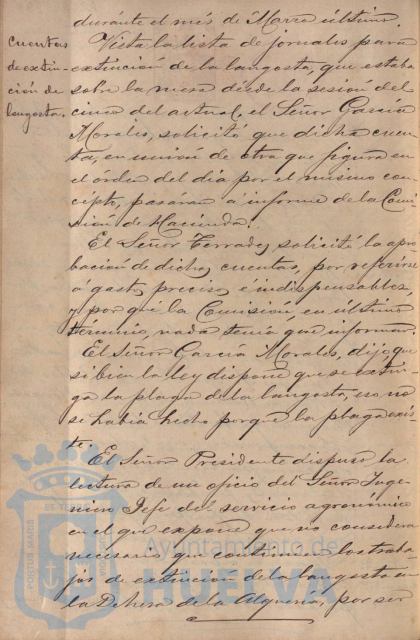 durante el més de Marzo último.
Cuentas
de extin-
ción de
langosta.
Vista la lista de jornales para
extinción de la langosta, que estaba
sobre la mesa desde la sesión del
cinco del actual, el Señor García
Morales, solicitó que dicha cuen-
ta, en unión de otra que figura en
el órden del día por el mismo con-
cepto, pasáran a informe de la Comi-
sión de Hacienda.
El Señor Terrades solicitó la apro-
bación de dichas cuentas, por referirse
a gastos precisos é indispensables,
y por qué la Comisión, en último
término, nada tenía que informar.
El Señor García Morales, dijo, que
si bien la ley dispone que se extin-
ga la plaga de la langosta, eso no
se había hecho porque la plaga exis-
te.
El Señor Presidente dispuso la
lectura de un oficio del Señor Inge-
niero Jefe del servicio agronómico
en el que expone que no considera
necesario que continúen los traba-
jos de extinción de la langosta en
la Dehesa de la Alquería, por ser
Ayuntamiento de
HUELVA
PORTUS MARIS